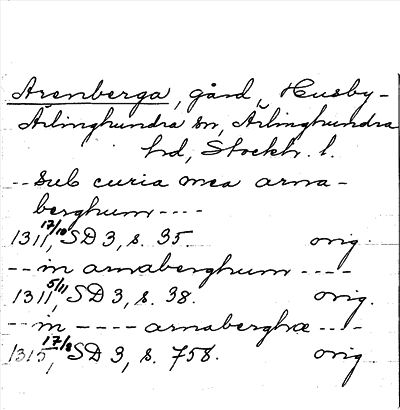 Arenberga, gård, Husby-
Ärlinghundra sn, Ärlinghundra
hd, Stockh. l.
-- sub curia mea arna-
berghum ----
1311 17/10, SD 3, s. 35. orig.
-- in arnaberghum ----
1311 5/11, SD 3, s. 38. orig.
-- in ---- arnaberghæ ----
1315, 17/8 SD 3, s. 758. orig.